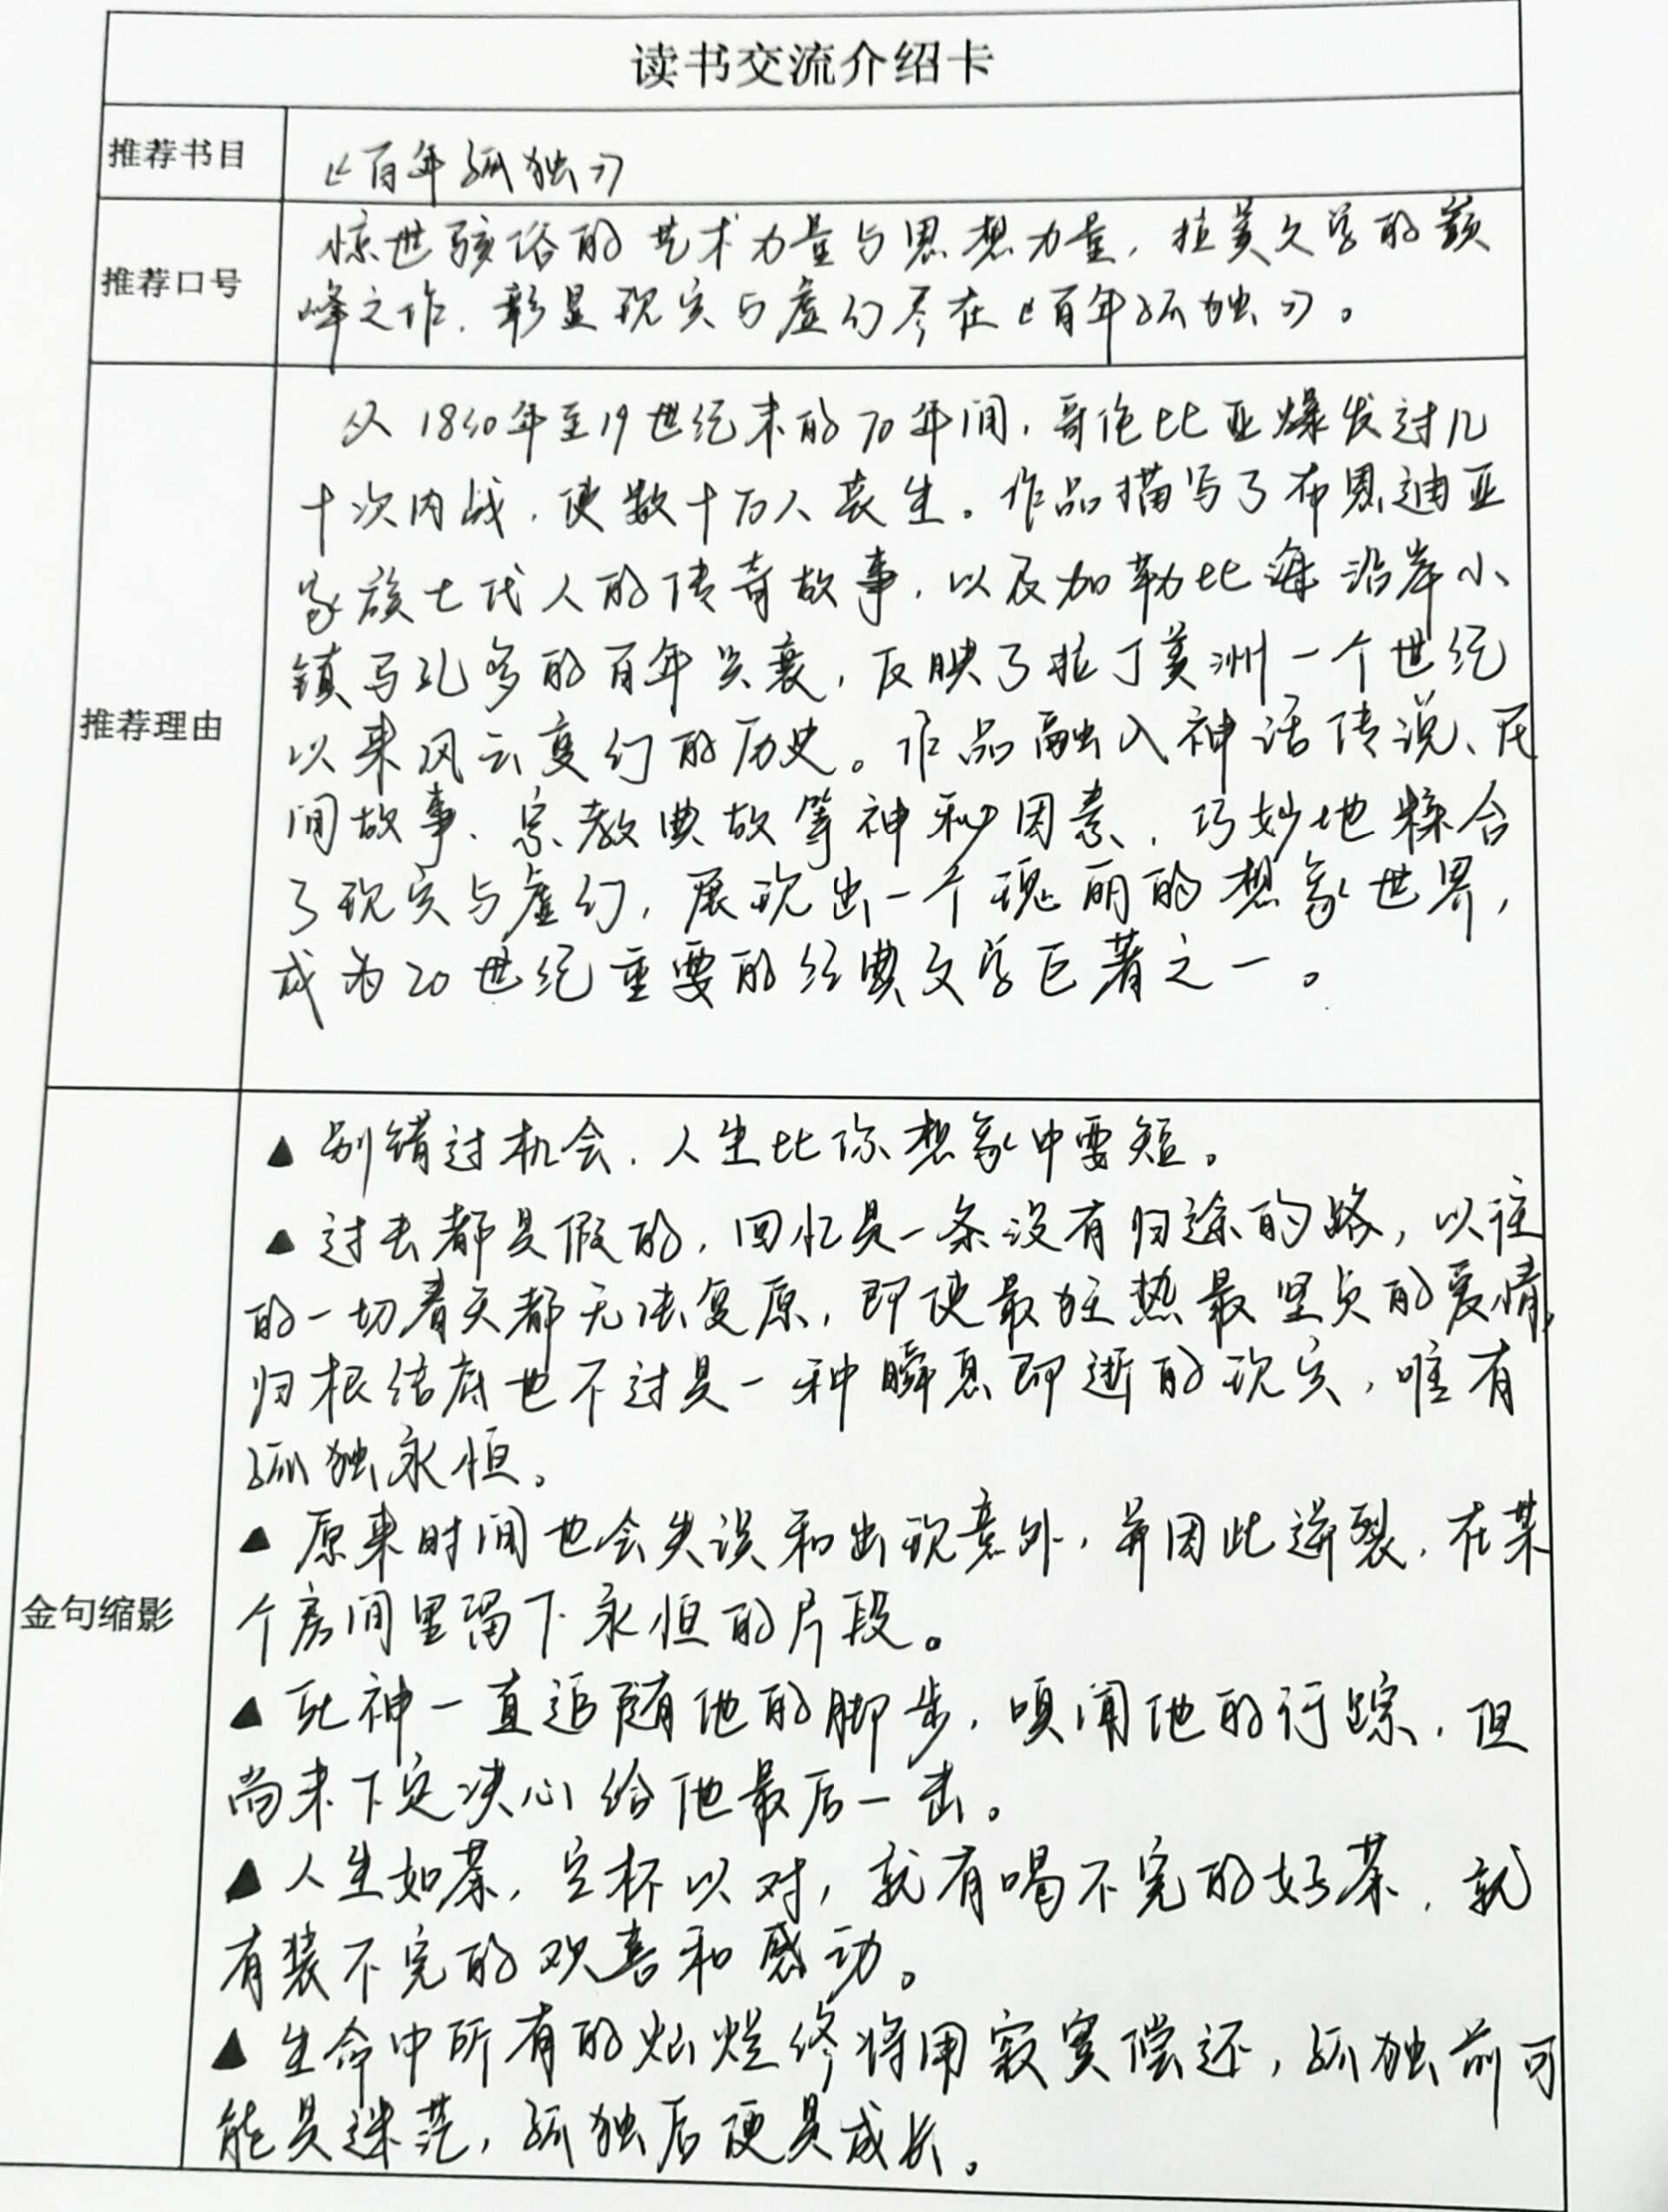 读书交流介绍卡
推荐书目
《百年孤独》
推荐口号
惊世骇俗的艺术力量与思想力量，拉美文学的巅
峰之作，彰显现实与虚幻尽在《百年孤独》。
推荐理由
从1830年至19世纪末的70年间，哥伦比亚爆发过几
十次内战，使数十万人丧生。作品描写了布恩迪亚
家族七代人的传奇故事，以及加勒比海沿岸小
镇马孔多的百年兴衰，反映了拉丁美洲一个世纪
以来风云变幻的历史。作品融入神话传说、民
间故事、宗教典故等神秘因素，巧妙地糅合
了现实与虚幻，展现出一个瑰丽的想象世界，
成为20世纪重要的经典文学巨著之一。
金句缩影
▲ 别错过机会，人生比你想象中要短。
▲ 过去都是假的，回忆是一条没有归途的路，以往
的一切春天都无法复原，即使最狂热最坚贞的爱情，
归根结底也不过是一种瞬息即逝的现实，唯有
孤独永恒。
▲ 原来时间也会失误和出现意外，并因此迸裂，在某
个房间里留下永恒的片段。
▲ 死神一直追随他的脚步，嗅闻他的行踪，但
尚未下定决心给他最后一击。
▲ 人生如茶，空杯以对，就有喝不完的好茶，就
有装不完的欢喜和感动。
▲ 生命中所有的灿烂终将用寂寞偿还，孤独前可
能是迷茫，孤独后便是成长。